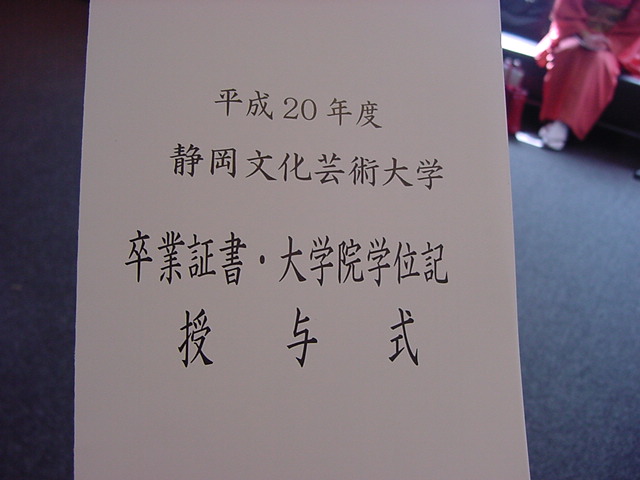 平成20年度
静岡文化芸術大学
卒業証書・大学院学位記
授与式